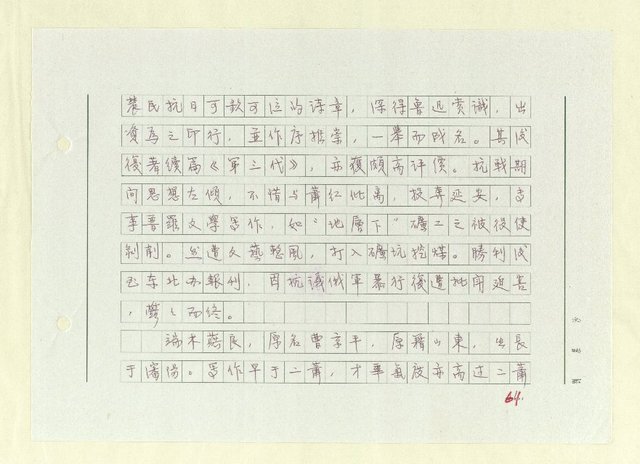 農民抗日可歌可泣的詩章，深得魯迅賞識，出
資為之印行，並作序推崇，一舉而成名。其後
復著續篇《第三代》，亦獲頗高評價。抗戰期
間思想左傾，不惜與蕭紅仳離，投奔延安，
事普羅文學寫作，如"地層下"礦工之被役使
剝削。慘遭文藝整風，打入礦坑挖煤。勝利後
在东北办報刊，因抗議俄軍暴行後遭批鬥迫害
，鬱々而終。
端木蕻良，原名曹京平，原籍山東，生長
于瀋陽。寫作早于二蕭，才華氣度亦高过二蕭
64.